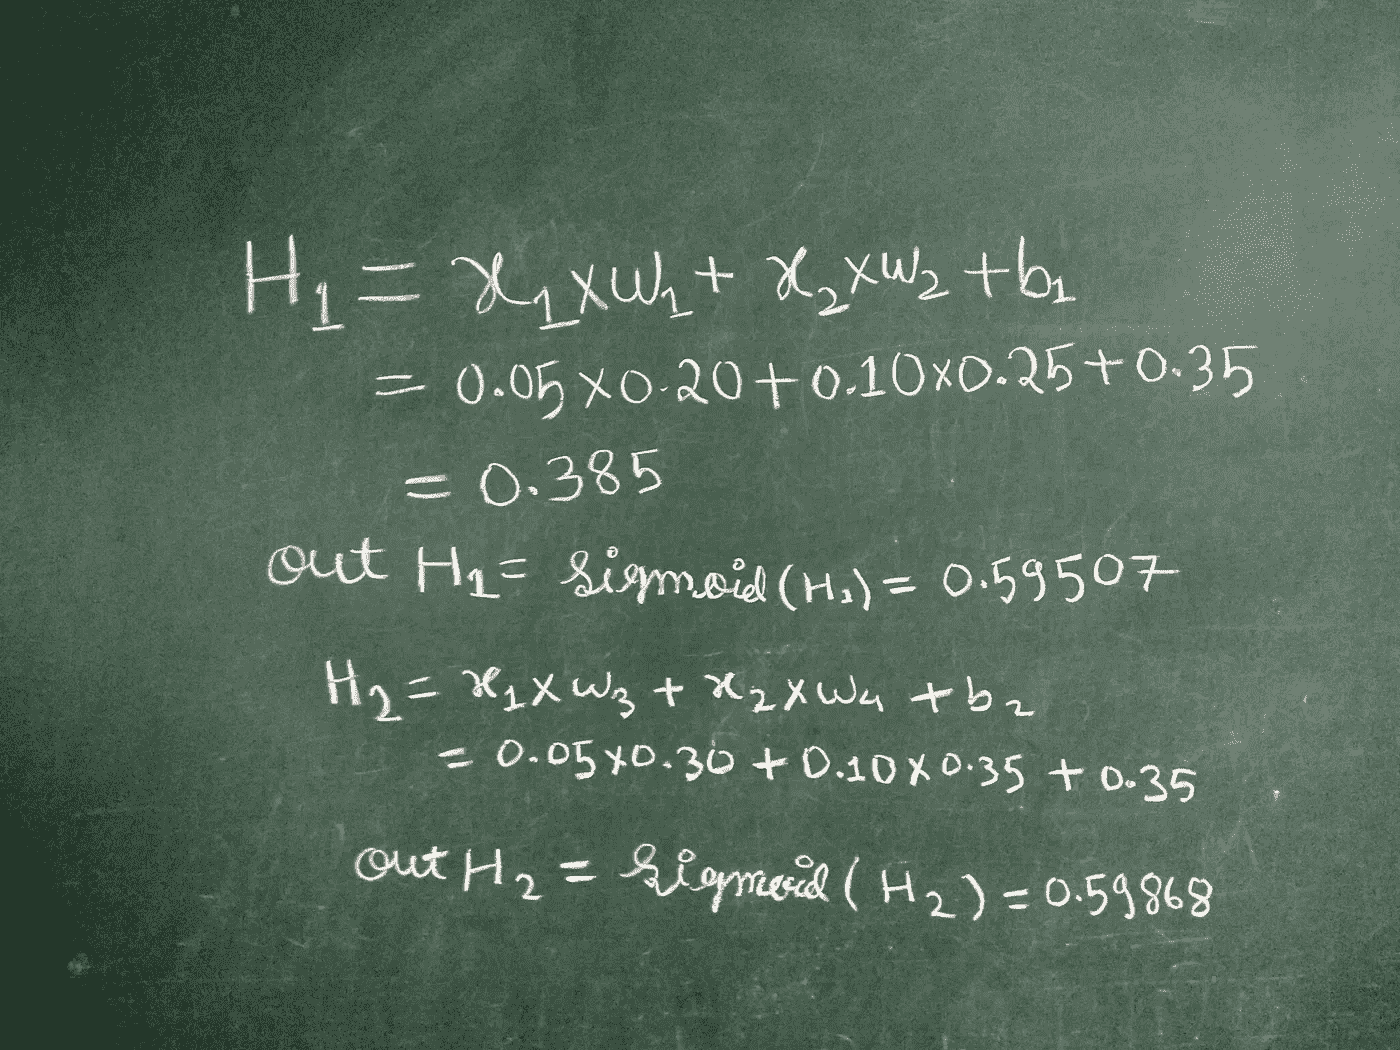 H₁ = x₁×w₁ + x₂×w₂ + b₁
= 0.05×0.20+0.10×0.25+0.35
= 0.385
out H₁ = Sigmoid (H₁) = 0.59507
H₂ = x₁×w₃ + x₂×w₄ + b₂
= 0.05×0.30 + 0.10×0.35 + 0.35
out H₂ = Sigmoid (H₂) = 0.59868